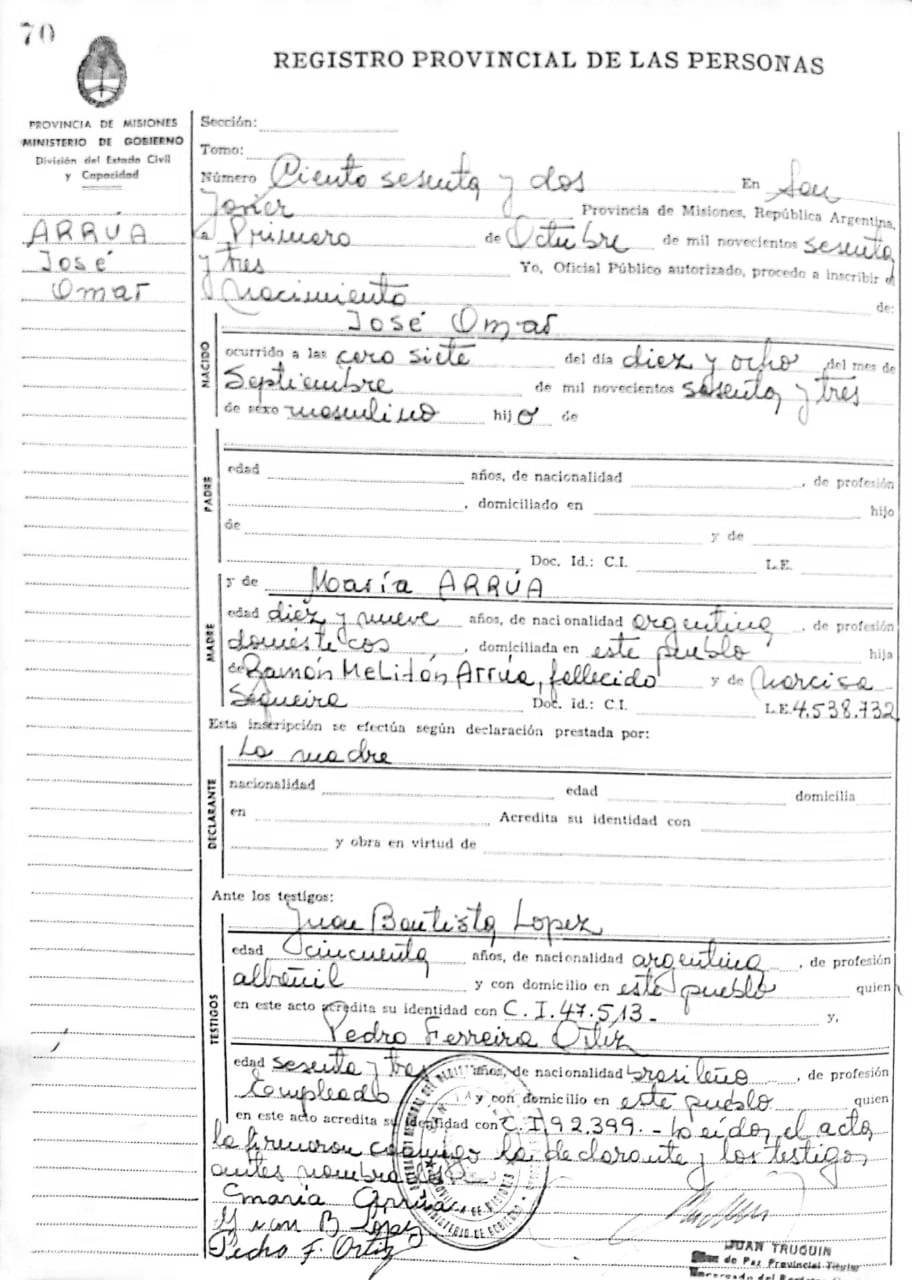 70
REGISTRO PROVINCIAL DE LAS PERSONAS
PROVINCIA DE MISIONES
MINISTERIO DE GOBIERNO
División del Estado Civil
y Capacidad
ARRÚA
José
Omar
Sección:
Tomo:
Número Ciento sesenta y dos En San
Javier Provincia de Misiones, República Argentina,
a Primero de Octubre de mil novecientos sesenta
y tres Yo, Oficial Público autorizado, procedo a inscribir el
nacimiento de:
NACIDO
José Omar
ocurrido a las cero siete del día diez y ocho del mes de
Septiembre de mil novecientos sesenta y tres
de sexo masculino hijo de
PADRE
edad años, de nacionalidad , de profesión
, domiciliado en hijo
de y de
Doc. Id.: C.I. L.E.
MADRE
y de María ARRÚA
edad diez y nueve años, de nacionalidad argentina , de profesión
domésticos , domiciliada en este pueblo hija
de Ramón Melitón Arrúa, fallecido y de Narcisa
Sequeira Doc. Id.: C.I. L.E. 4.538.732
Esta inscripción se efectúa según declaración prestada por:
DECLARANTE
La madre
nacionalidad edad domicilia
en Acredita su identidad con
y obra en virtud de
Ante los testigos:
TESTIGOS
Juan Bautista Lopez
edad cincuenta años, de nacionalidad argentina , de profesión
albañil y con domicilio en este pueblo quien
en este acto acredita su identidad con C.I. 47.513.- y,
Pedro Ferreira Ortiz
edad sesenta y tres años, de nacionalidad brasileño , de profesión
Empleado y con domicilio en este pueblo quien
en este acto acredita su identidad con C.I 92.399.- Leído, el acta,
la firmaron conmigo la declarante y los testigos
antes nombrados.
Maria Arrua
Juan B Lopez
Pedro F. Ortiz
JUAN TRUQUIN
de Paz Provincial Titular